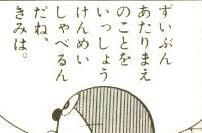 ずいぶん
あたりまえ
のことを
いっしょう
けんめい
しゃべるん
だね、
きみは。